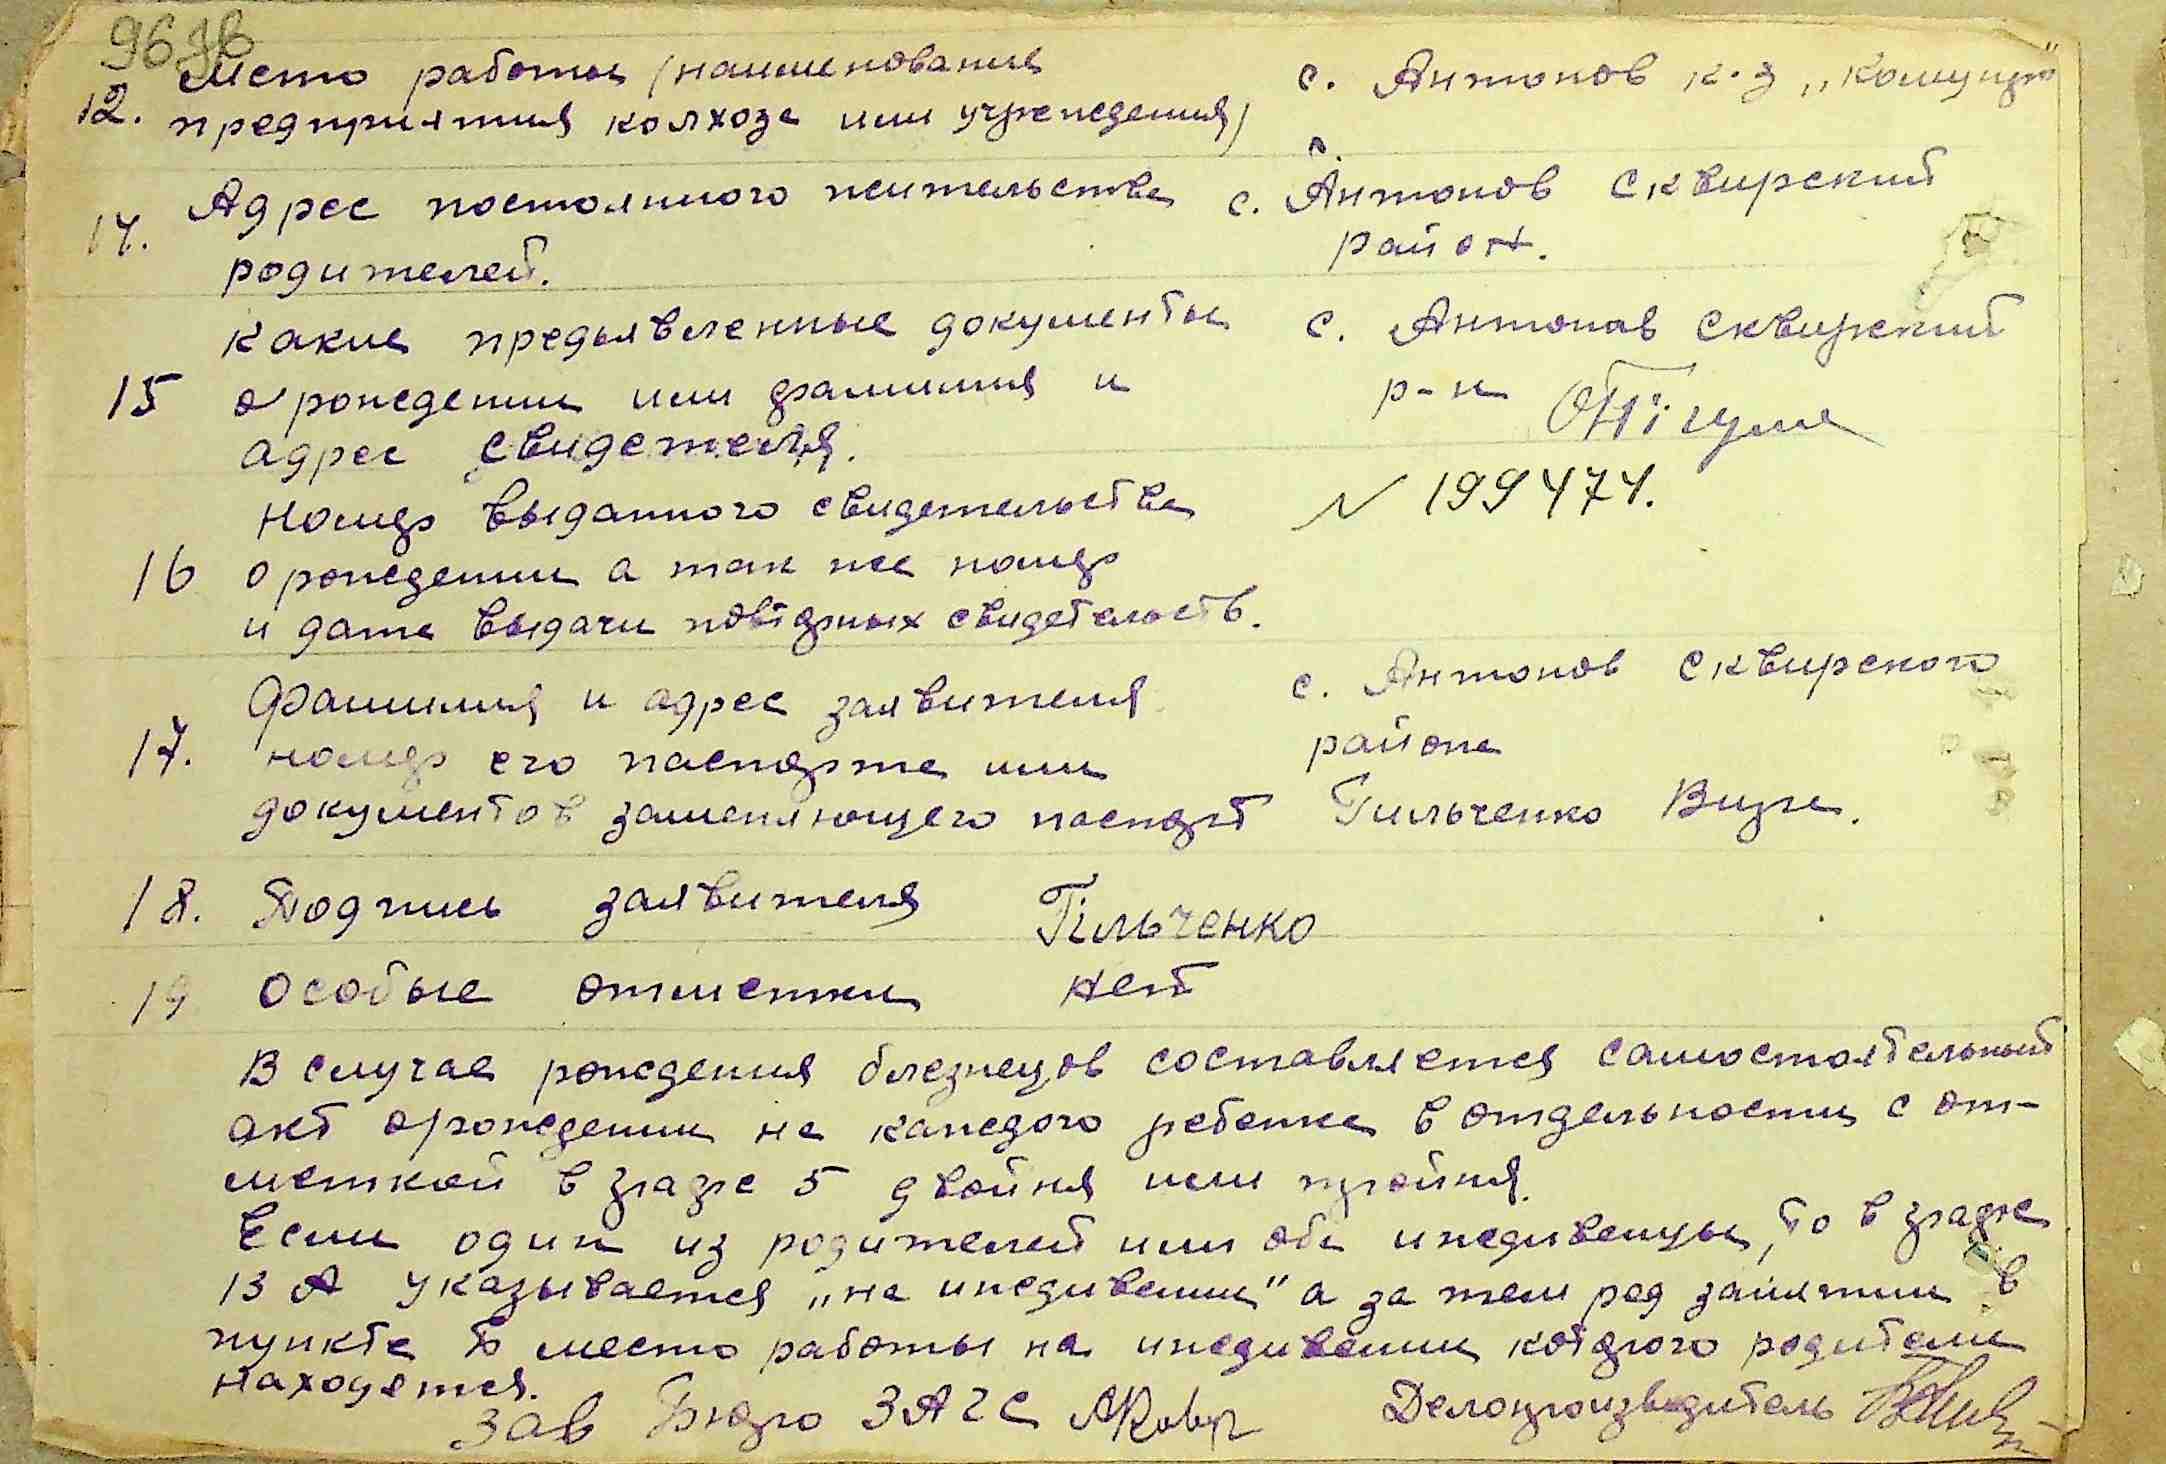 96 зв
Место работы (наименования с. Антонов к-з „Комунист"
12. предприятия колхоза или учреждения) с.
Адрес постоянного жительства с. Антонов Сквирский
14. район.
родителей.
Какие предъявленные документы с. Антонов Сквирский
15 о рождении или фамилия и р-н
адрес свидетеля.
Номер выданного свидетельства N 199474.
16 о рождении а так же номер
и дата выдачи повторных свидетельств.
Фамилия и адрес заявителя с. Антонов Сквирского
17. номер его паспорта или района
документов заменяющего паспорт Гильченко Вира.
18. Подпись заявителя Гільченко
19 Особые отметки нет
В случае рождения близнецов составляется самостоятельный
акт о рождении на каждого ребенка в отдельности с от-
меткой в графе 5 двойня или тройня.
Если один из родителей или оба иждивенцы, то в графе
13 А указывается „на иждивении" а за тем род занятии в
пункте Б место работы на иждивении которого родители
находятся.
Зав Бюро ЗАГС Делопроизводитель